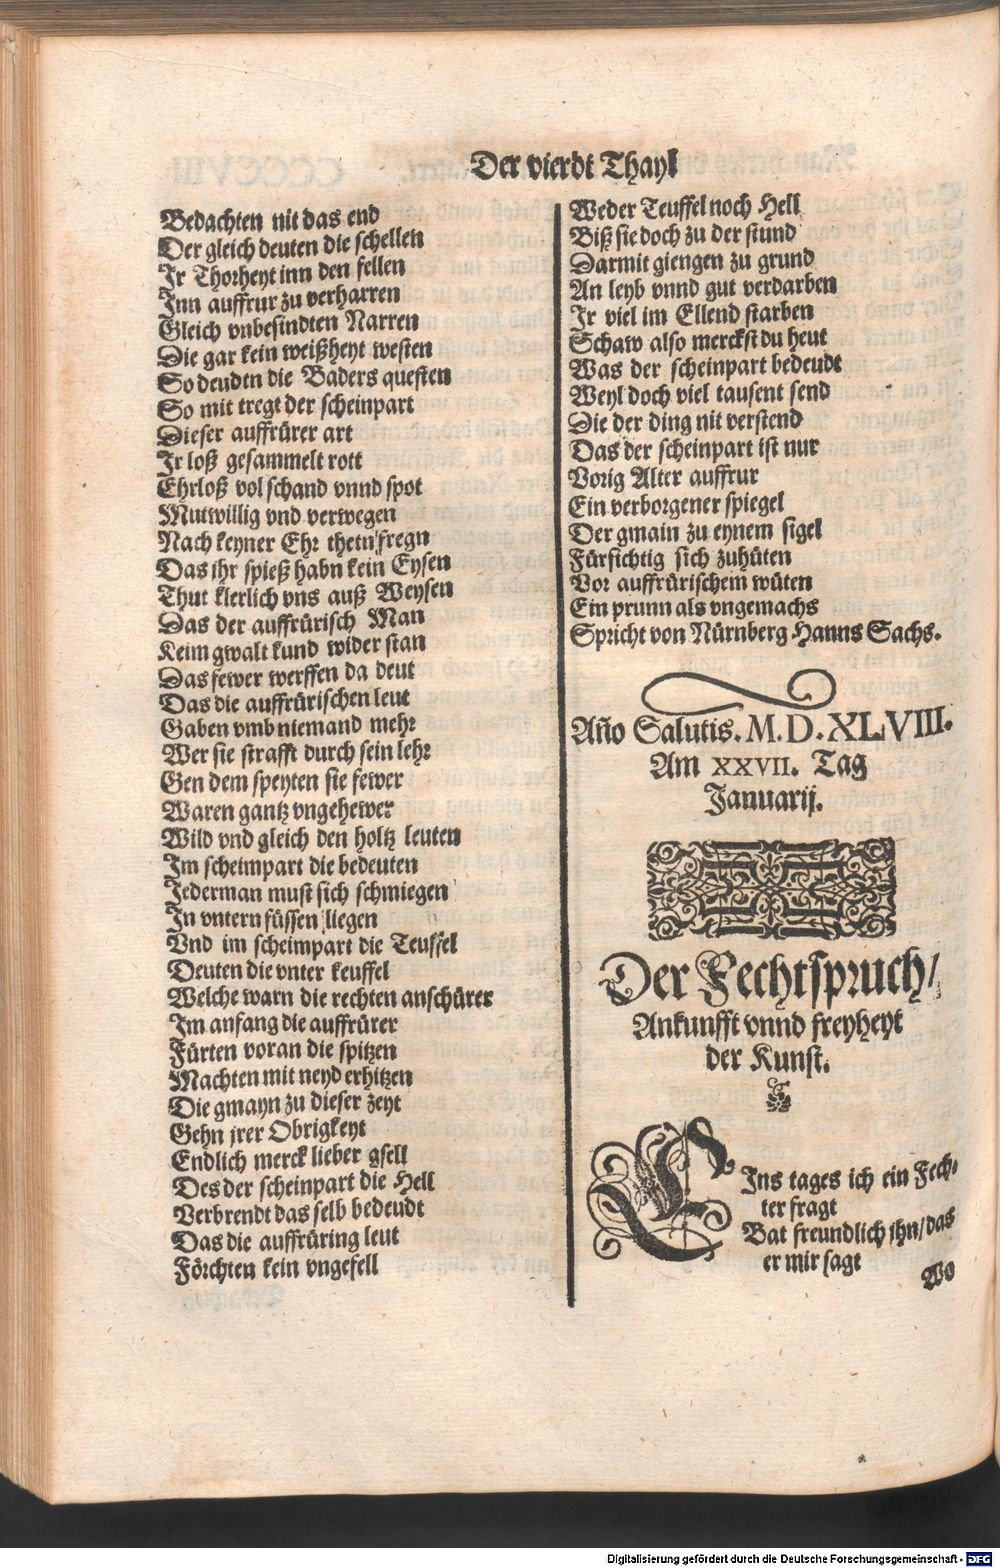 Der vierdt Thayl
Bedachten nit das end
Der gleich deuten die schellen
Ir Thorheyt inn den fellen
Inn auffrur zu verharren
Gleich vnbesindten Narren
Die gar kein weißheyt westen
So deudtn die Baders questen
So mit tregt der scheinpart
Dieser auffrürer art
Ir loß gesammelt rott
Ehrloß vol schand vnnd spot
Mutwillig vnd verwegen
Nach keyner Ehr thetn fregn
Das ihr spieß habn kein Eysen
Thut klerlich vns auß Weysen
Das der auffrürisch Man
Keim gwalt kund wider stan
Das fewer werffen da deut
Das die auffrürischen leut
Gaben vmb niemand mehr
Wer sie strafft durch sein lehr
Gen dem speyten sie fewer
Waren gantz vngehewer
Wild vnd gleich den holtz leuten
Im scheimpart die bedeuten
Jederman must sich schmiegen
In vntern füssen liegen
Vnd im scheimpart die Teuffel
Deuten die vnter keuffel
Welche warn die rechten anschürer
Im anfang die auffrürer
Fürten voran die spitzen
Machten mit neyd erhitzen
Die gmayn zu dieser zeyt
Gehn jrer Obrigkeyt
Endlich merck lieber gsell
Des der scheinpart die Hell
Verbrendt das selb bedeudt
Das die auffrüring leut
Förchten kein vngefell
Weder Teuffel noch Hell
Biß sie doch zu der stund
Darmit giengen zu grund
An leyb vnnd gut verdarben
Ir viel im Ellend starben
Schaw also merckst du heut
Was der scheinpart bedeudt
Weyl doch viel tausent send
Die der ding nit verstend
Das der scheinpart ist nur
Vorig Alter auffrur
Ein verborgener spiegel
Der gmain zu eynem sigel
Fürsichtig sich zuhüten
Vor auffrürischem wüten
Ein prunn als vngemachs
Spricht von Nürnberg Hanns Sachs.
Año Salutis. M. D. XLVIII.
Am XXVII. Tag
Januarij.
Der Fechtspruch/
Ankunfft vnnd freyheyt
der Kunst.
EIns tages ich ein Fech⸗
ter fragt
Bat freundlich jhn/das
er mir sagt
Wo
Digitalisierung gefördert durch die Deutsche Forschungsgemeinschaft - DFG